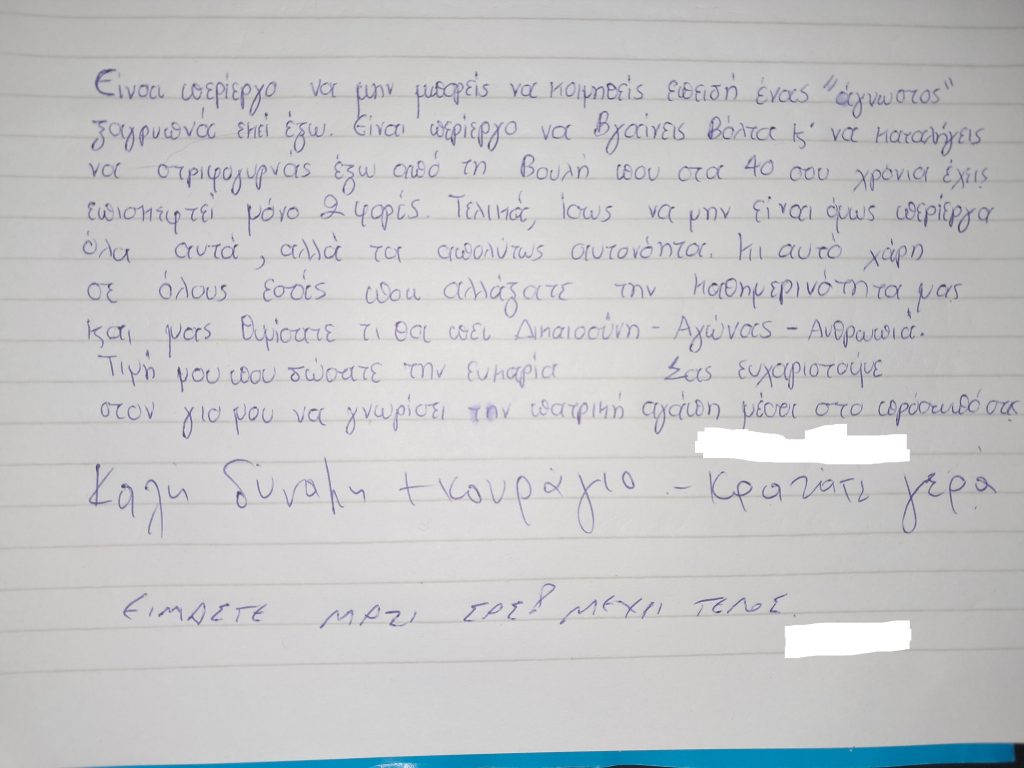 Είναι περίεργο να μην μπορείς να κοιμηθείς επειδή ένας "άγνωστος"
ξαγρυπνά εκεί έξω. Είναι περίεργο να βγαίνεις βόλτα κ' να καταλήγεις
να στριφογυρνάς έξω από τη Βουλή που στα 40 σου χρόνια έχεις
επισκεφτεί μόνο 2 φορές. Τελικά, ίσως να μην είναι όμως περίεργα
όλα αυτά, αλλά τα απολύτως αυτονόητα. Κι αυτό χάρη
σε όλους εσάς που αλλάξατε την καθημερινότητα μας
και μας θυμίσατε τι θα πει Δικαιοσύνη - Αγώνας - Ανθρωπιά.
Τιμή μου που δώσατε την ευκαρία Σας ευχαριστούμε
στον γιο μου να γνωρίσει την πατρική αγάπη μέσα στο πρόσωπό σας
Καλή δύναμη + κουράγιο - Κρατάτε γερά
ΕΙΜΑΣΤΕ ΜΑΖΙ ΣΑΣ! ΜΕΧΡΙ ΤΕΛΟΣ.